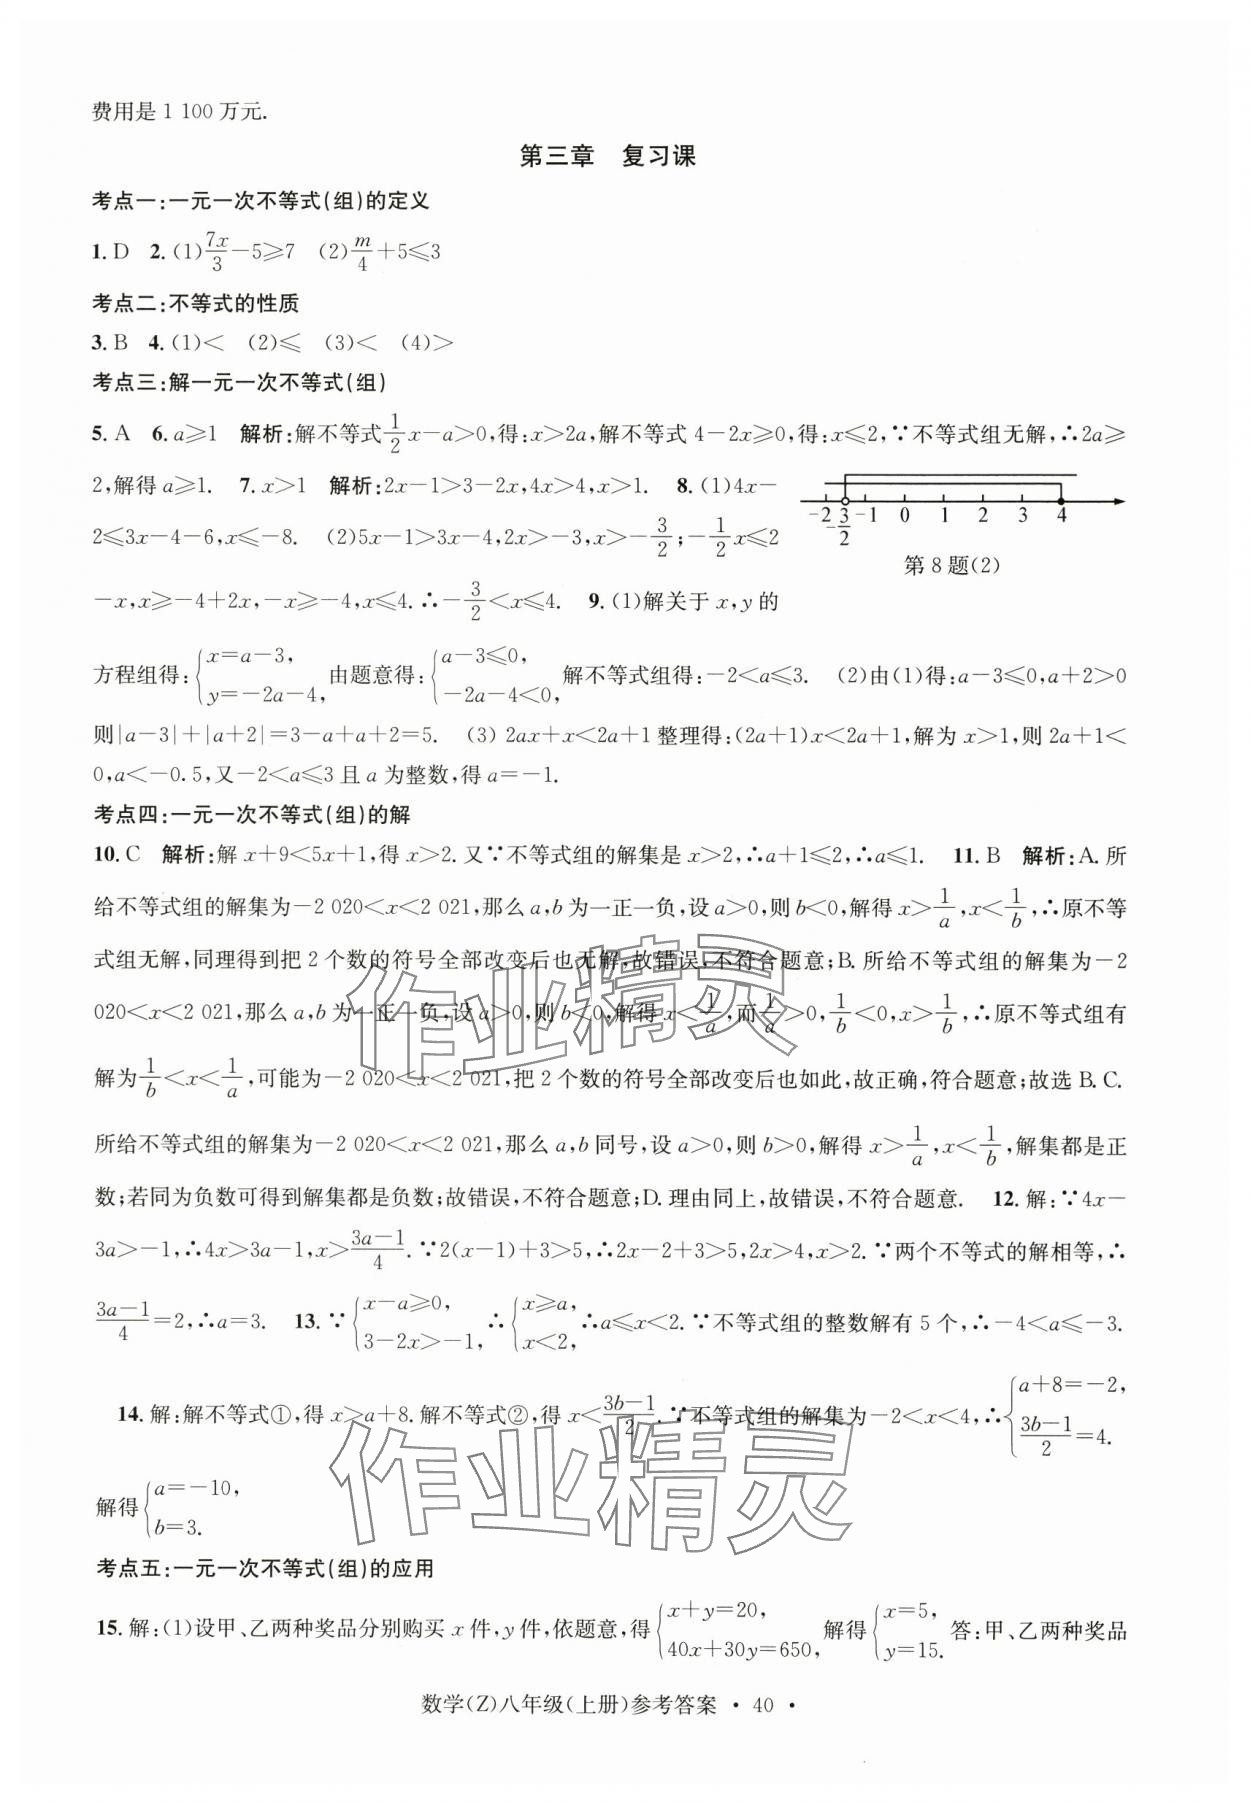 费用是 1 100 万元.
第三章　复习课
考点一:一元一次不等式(组)的定义
1. D　2. (1)7x/3－5⩾7　(2)m/4＋5⩽3
考点二:不等式的性质
3. B　4. (1)＜　(2)⩽　(3)＜　(4)＞
考点三:解一元一次不等式(组)
5. A　6. a⩾1　解析:解不等式1/2x－a＞0,得:x＞2a,解不等式 4－2x⩾0,得:x⩽2,∵不等式组无解,∴2a⩾
2,解得 a⩾1.　7. x＞1　解析:2x－1＞3－2x,4x＞4,x＞1.　8. (1)4x－
2⩽3x－4－6,x⩽－8.　(2)5x－1＞3x－4,2x＞－3,x＞－3/2;－1/2x⩽2
－x,x⩾－4＋2x,－x⩾－4,x⩽4.∴－3/2＜x⩽4.　9. (1)解关于 x,y 的
－2 －3/2 －1 0 1 2 3 4
第 8 题(2)
方程组得:{x＝a－3, y＝－2a－4, 由题意得:{a－3⩽0, －2a－4＜0, 解不等式组得:－2＜a⩽3.　(2)由(1)得:a－3⩽0,a＋2＞0
则|a－3|＋|a＋2|＝3－a＋a＋2＝5.　(3) 2ax＋x＜2a＋1 整理得:(2a＋1)x＜2a＋1,解为 x＞1,则 2a＋1＜
0,a＜－0.5,又－2＜a⩽3 且 a 为整数,得 a＝－1.
考点四:一元一次不等式(组)的解
10. C　解析:解 x＋9＜5x＋1,得 x＞2.又∵不等式组的解集是 x＞2,∴a＋1⩽2,∴a⩽1.　11. B　解析:A. 所
给不等式组的解集为－2 020＜x＜2 021,那么 a,b 为一正一负,设 a＞0,则 b＜0,解得 x＞1/a,x＜1/b,∴原不等
式组无解,同理得到把 2 个数的符号全部改变后也无解,故错误,不符合题意;B. 所给不等式组的解集为－2
020＜x＜2 021,那么 a,b 为一正一负,设 a＞0,则 b＜0,解得 x＜1/a,而1/a＞0,1/b＜0,x＞1/b,∴原不等式组有
解为1/b＜x＜1/a,可能为－2 020＜x＜2 021,把 2 个数的符号全部改变后也如此,故正确,符合题意;故选 B. C.
所给不等式组的解集为－2 020＜x＜2 021,那么 a,b 同号,设 a＞0,则 b＞0,解得 x＞1/a,x＜1/b,解集都是正
数;若同为负数可得到解集都是负数;故错误,不符合题意;D. 理由同上,故错误,不符合题意.　12. 解:∵4x－
3a＞－1,∴4x＞3a－1,x＞3a－1/4.∵2(x－1)＋3＞5,∴2x－2＋3＞5,2x＞4,x＞2.∵两个不等式的解相等,∴
3a－1/4＝2,∴a＝3.　13. ∵{x－a⩾0, 3－2x＞－1, ∴{x⩾a, x＜2, ∴a⩽x＜2.∵不等式组的整数解有 5 个,∴－4＜a⩽－3.
14. 解:解不等式①,得 x＞a＋8.解不等式②,得 x＜3b－1/2.∵不等式组的解集为－2＜x＜4,∴{a＋8＝－2, 3b－1/2＝4.
解得{a＝－10, b＝3.
考点五:一元一次不等式(组)的应用
15. 解:(1)设甲、乙两种奖品分别购买 x 件,y 件,依题意,得{x＋y＝20, 40x＋30y＝650, 解得{x＝5, y＝15. 答:甲、乙两种奖品
数学(Z)八年级(上册)参考答案 • 40 •
作业精灵
作业精灵